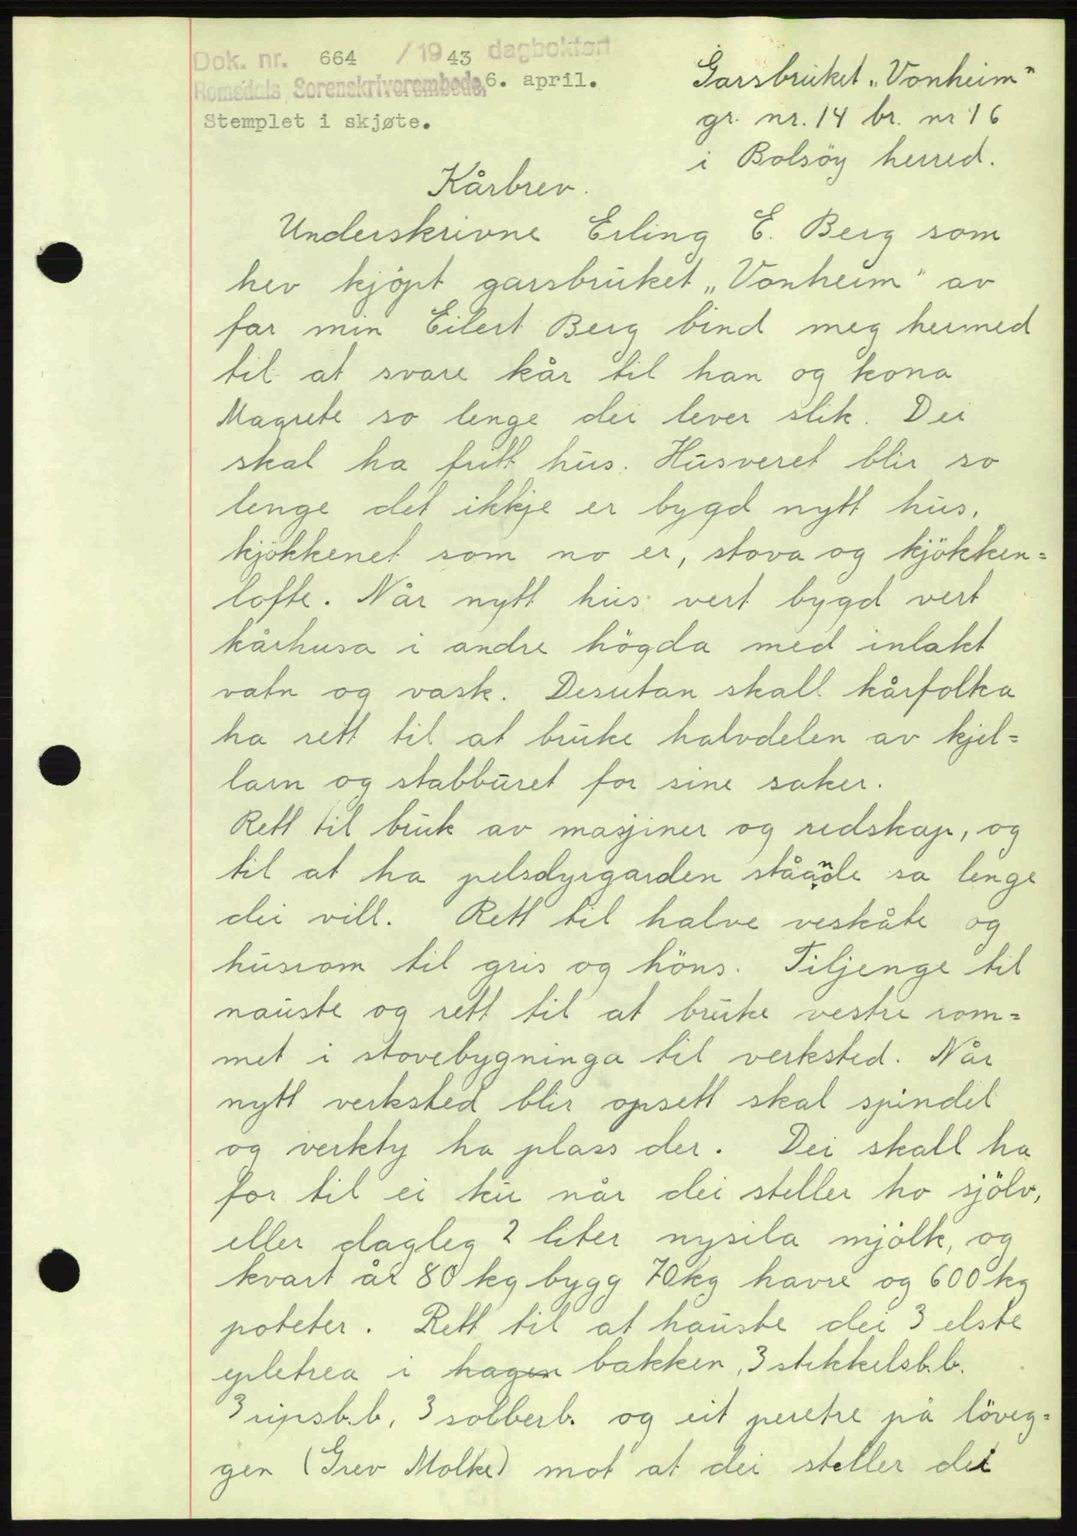 Dok. nr. 664 / 1943 dagbokført
Romsdals Sorenskriverembede, 6. april.
Stemplet i skjøte.
Garsbruket „Vonheim"
gr. nr. 14 br. nr 16
i Bolsöy herred.
Kårbrev.
Underskrivne Erling E. Berg som
hev kjöpt garsbruket „Vonheim" av
far min Eilert Berg bind meg hermed
til at svare kår til han og kona
Magrete so lenge dei lever slik. Dei
skal ha fritt hus. Husveret blir so
lenge det ikkje er bygd nytt hus,
kjökkenet som no er, stova og kjökken=
lofte. Når nytt hus vert bygd vert
kårhusa i andre högda med inlakt
vatn og vask. Desutan skall kårfolka
ha rett til at bruke halvdelen av kjel=
larn og stabburet for sine saker.
Rett til bruk av masjiner og redskap, og
til at ha pelsdyrgarden ståande sa lenge
dei vill. Rett til halve veskåte og
husrom til gris og höns. Tiljenge til
nauste og rett til at bruke vestre rom=
met i stovebygninga til verksted. Når
nytt verksted blir opsett skal spindel
og verkty ha plass der. Dei skall ha
for til ei ku når dei steller ho sjölv,
eller dagleg 2 liter nysila mjölk, og
kvart år 80 kg bygg 70 kg havre og 600 kg
poteter. Rett til at hauste dei 3 elste
epletrea i hagen bakken, 3 stikkelsb.b.
3 ripsb.b, 3 solberb. og eit peretre på löveg=
gen (Grev Molke) mot at dei steller dei